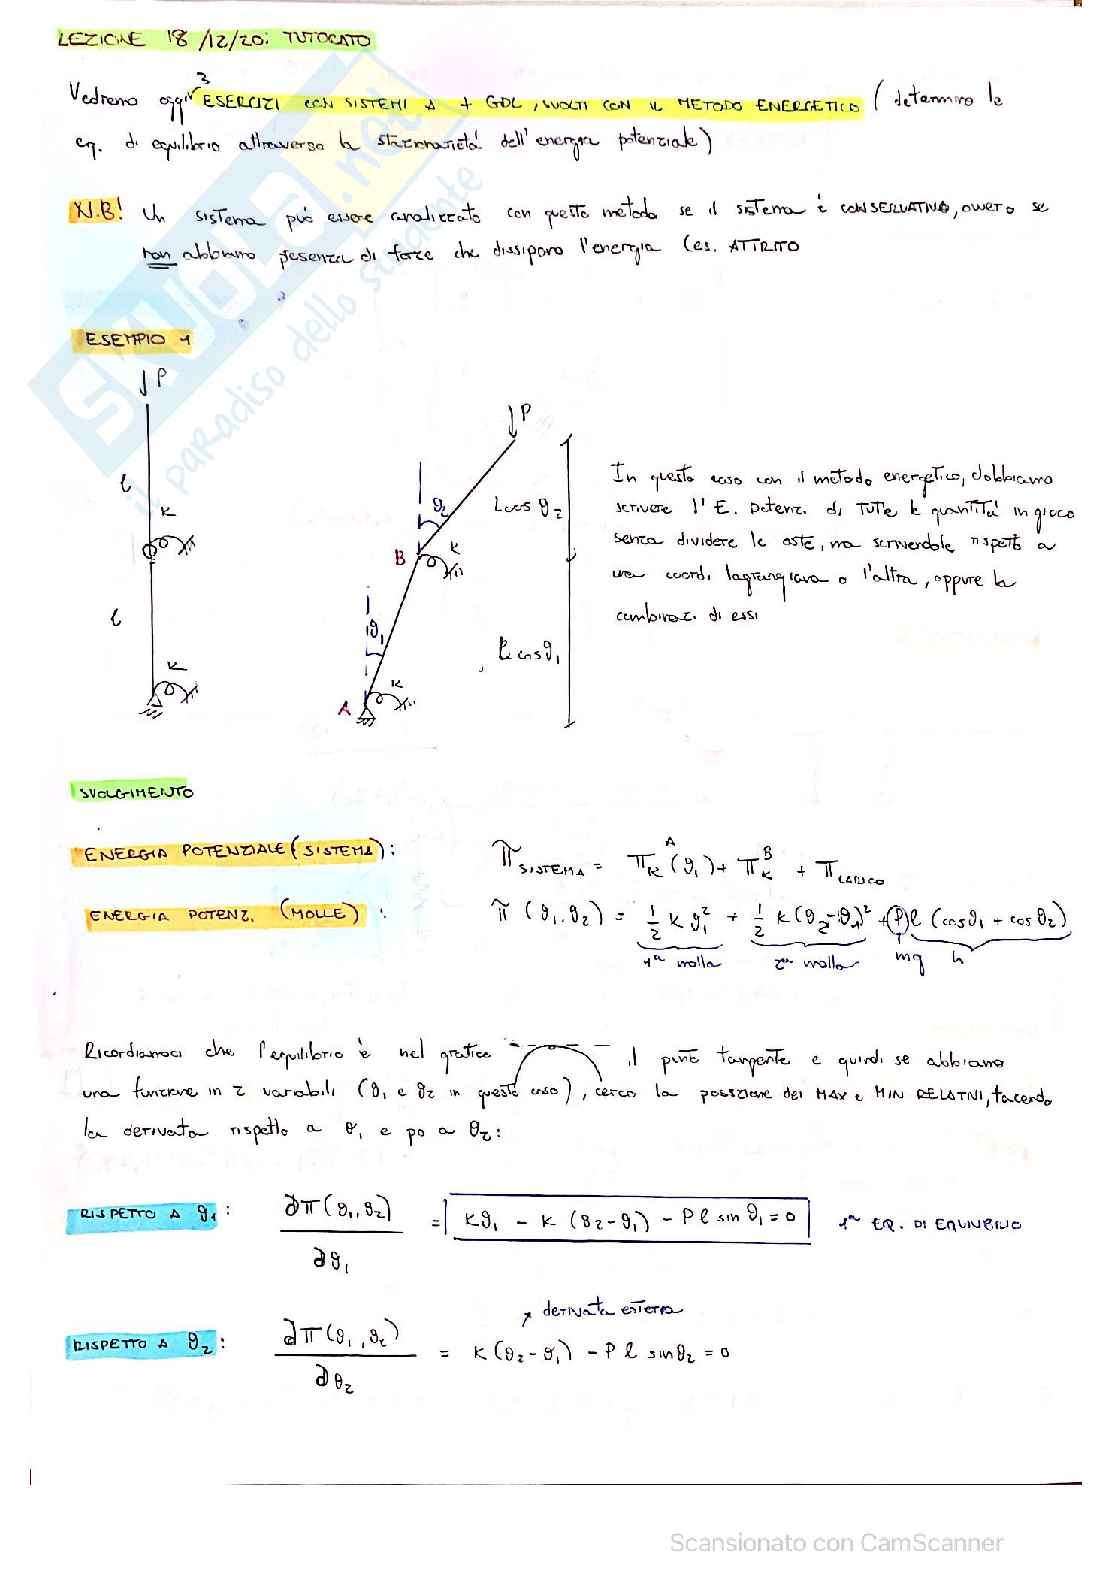 LEZIONE 18/12/20: TUTORATO
Vedremo oggi 3 ESERCIZI CON SISTEMI A + GDL, SVOLTI CON IL METODO ENERGETICO (determino le
eq. di equilibrio attraverso la stazionarietà dell'energia potenziale)
N.B! Un sistema può essere analizzato con questo metodo se il sistema è CONSERVATIVO, ovvero se
non abbiamo presenza di forze che dissipano l'energia (es. ATTRITO
ESEMPIO 1
P
l
K
l
K
P
ϑ2
B
K
ϑ1
A
K
L cos ϑ2
l cos ϑ1
In questo caso con il metodo energetico, dobbiamo
scrivere l'E. potenz. di TUTTE le quantità in gioco
senza dividere le aste, ma scrivendole rispetto a
una coord. lagrangiana o l'altra, oppure la
combinaz. di essi
SVOLGIMENTO
ENERGIA POTENZIALE (SISTEMA): π SISTEMA = π_K^A (ϑ1) + π_K^B + π CARICO
ENERGIA POTENZ. (MOLLE) : π (ϑ1, ϑ2) = 1/2 K ϑ1² + 1/2 K (ϑ2 - ϑ1)² + P l (cos ϑ1 + cos ϑ2)
1ª molla 2ª molla mg h
Ricordiamoci che l'equilibrio è nel grafico il punto tangente e quindi se abbiamo
una funzione in 2 variabili (ϑ1 e ϑ2 in questo caso), cerco la posizione dei MAX e MIN RELATIVI, facendo
la derivata rispetto a ϑ1 e poi a ϑ2:
RISPETTO A ϑ1: ∂π(ϑ1, ϑ2) / ∂ϑ1 = Kϑ1 - K (ϑ2 - ϑ1) - P l sin ϑ1 = 0 1ª EQ. DI EQUILIBRIO
derivata esterna
RISPETTO A ϑ2: ∂π(ϑ1, ϑ2) / ∂ϑ2 = K (ϑ2 - ϑ1) - P l sin ϑ2 = 0
SKUOLA.net
il paradiso dello studente
Scansionato con CamScanner